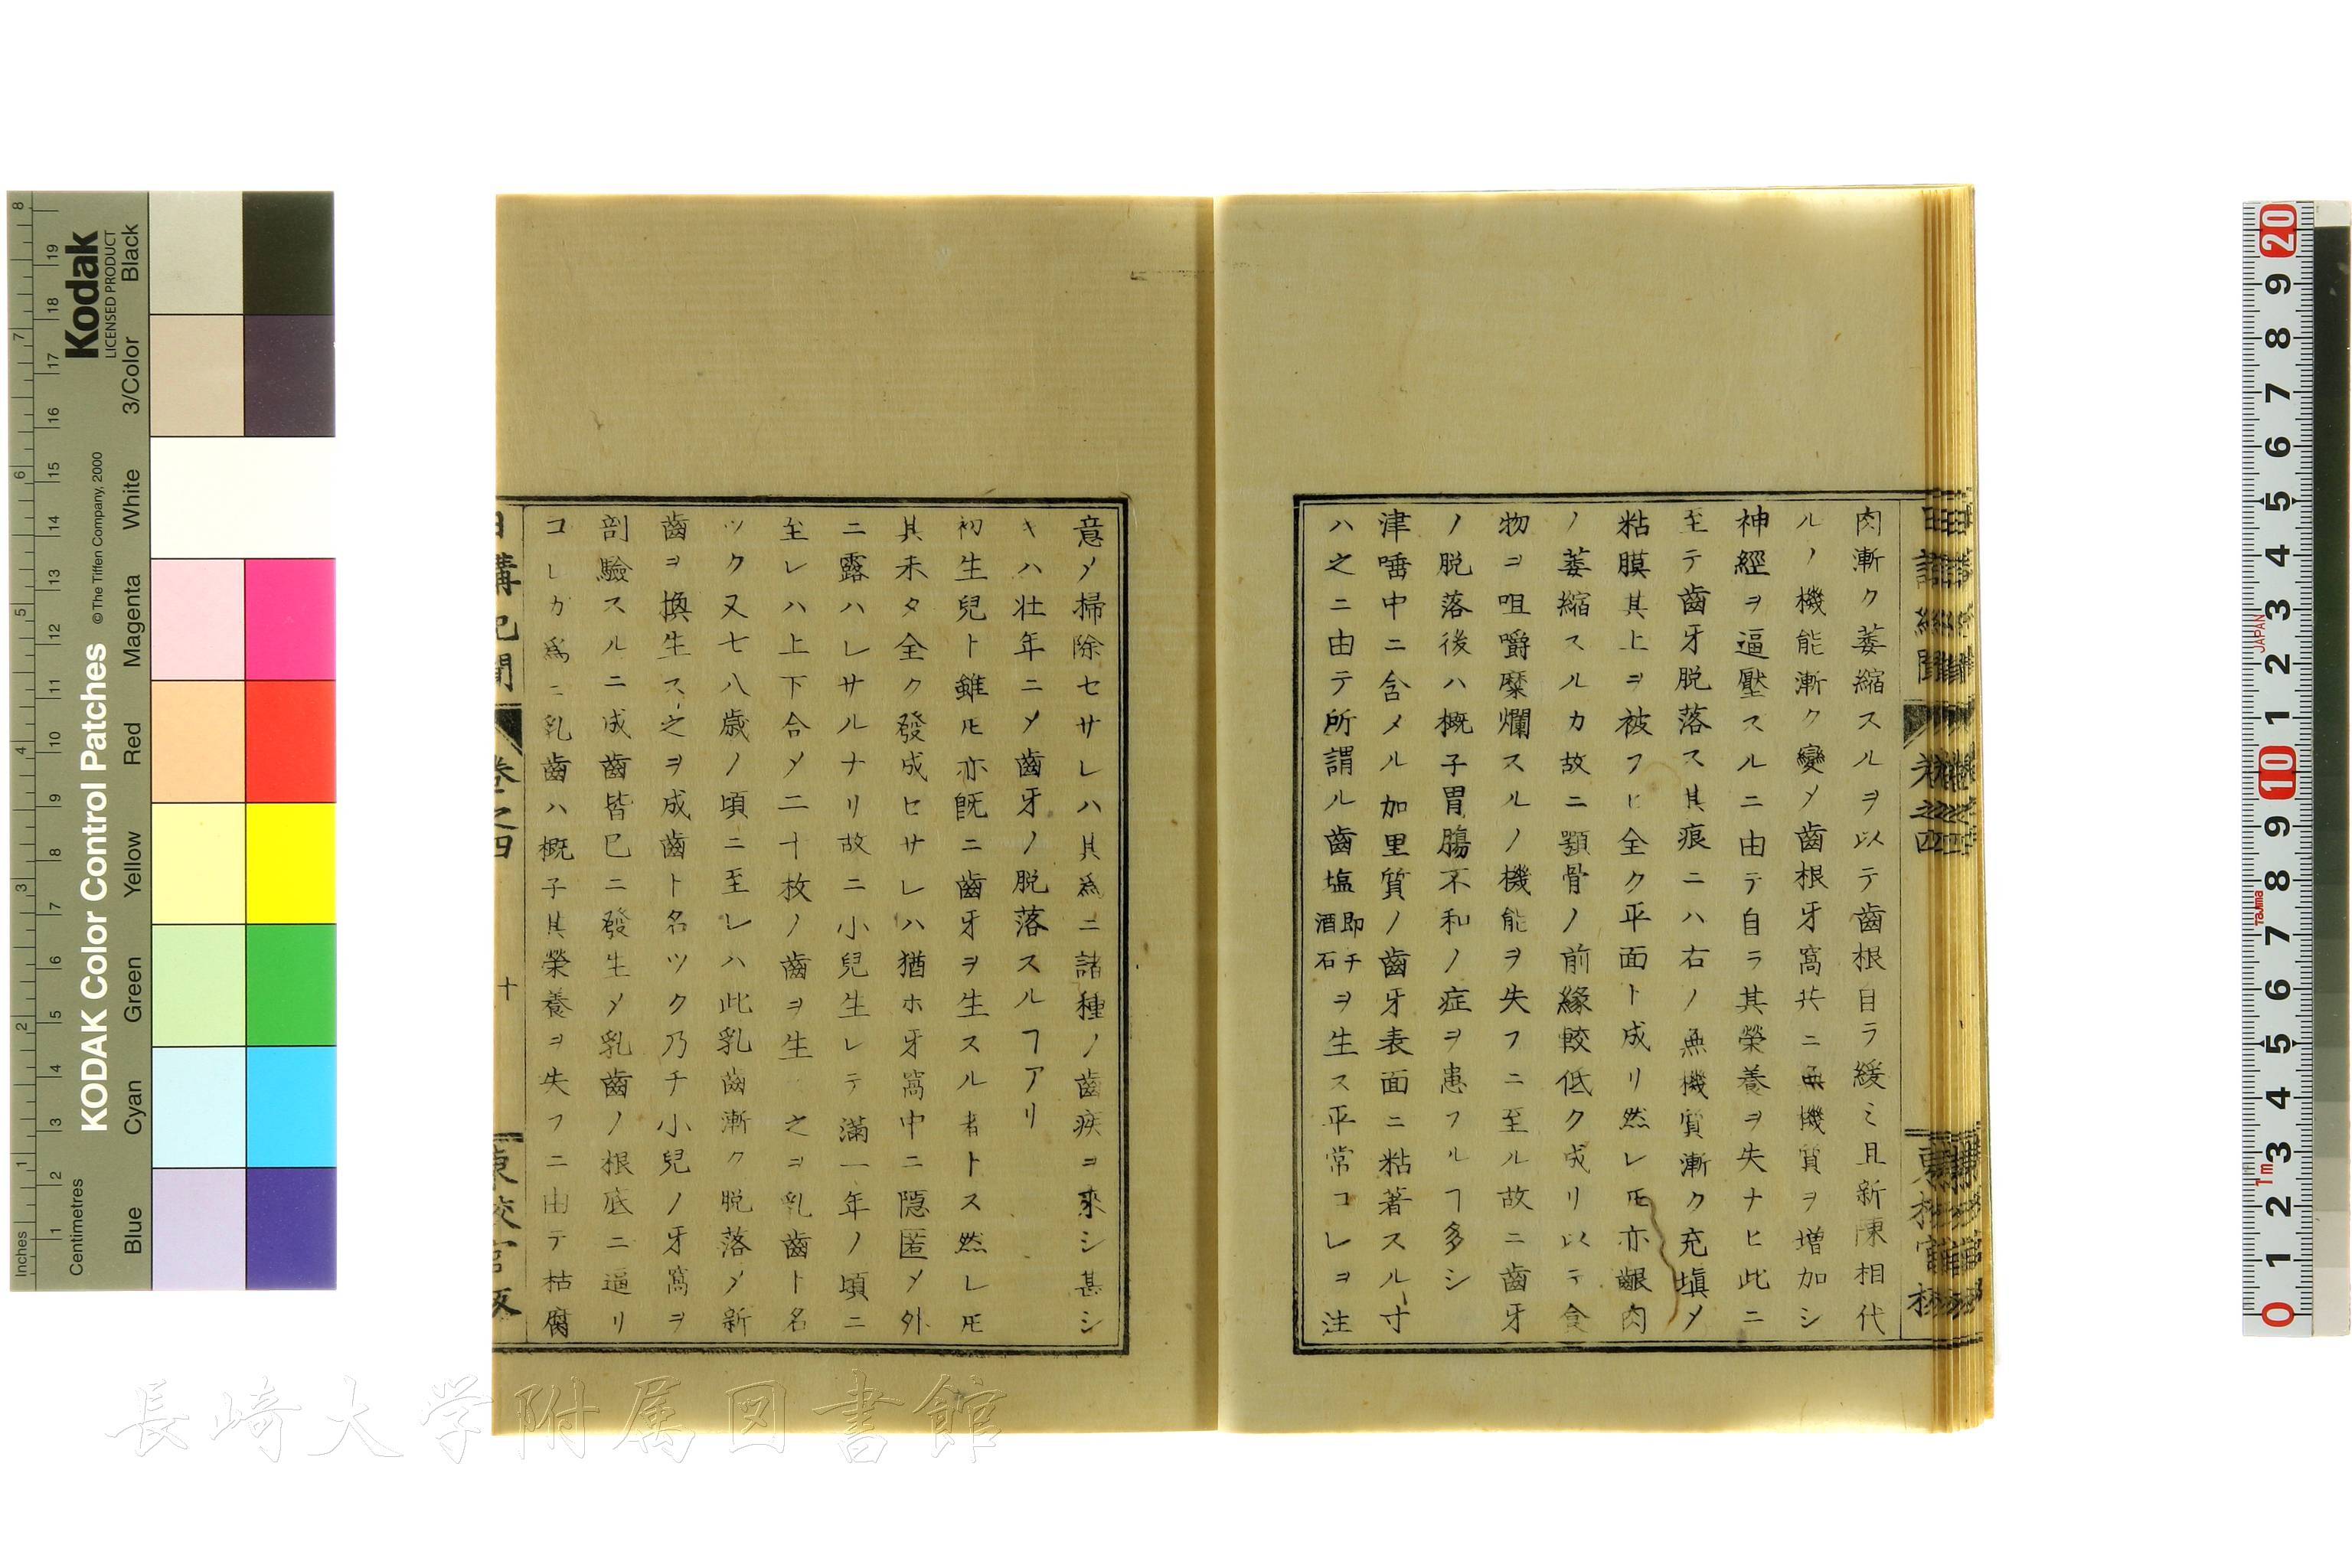 肉漸ク萎縮スルヲ以テ齒根自ラ緩ミ且新陳相代
ルノ機能漸ク變メ齒根牙窩共ニ無機質ヲ増加シ
神經ヲ逼壓スルニ由テ自ラ其榮養ヲ失ナヒ此ニ
至テ齒牙脱落ス其痕ニハ右ノ無機質漸ク充塡メ
粘膜其上ヲ被フヒ全ク平面ト成リ然レ𪜈亦齦肉
ノ萎縮スルカ故ニ顎骨ノ前緣較低ク成リ以テ食
物ヲ咀嚼糜爛スルノ機能ヲ失フニ至ル故ニ齒牙
ノ脱落後ハ概子胃腸不和ノ症ヲ患フルヿ多シ
津唾中ニ含メル加里質ノ齒牙表面ニ粘著スル寸
ハ之ニ由テ所謂ル齒塩即チ酒石ヲ生ス平常コレヲ注
意メ掃除セサレハ其為ニ諸種ノ齒疾ヲ來シ甚シ
キハ壮年ニメ齒牙ノ脱落スルヿアリ
初生兒ト雖𪜈亦既ニ齒牙ヲ生スル者トス然レ𪜈
其未タ全ク發成セサレハ猶ホ牙窩中ニ隠匿メ外
ニ露ハレサルナリ故ニ小兒生レテ滿一年ノ頃ニ
至レハ上下合メ二十枚ノ齒ヲ生 之ヲ乳齒ト名
ツク又七八歳ノ頃ニ至レハ此乳齒漸ク脱落メ新
齒ヲ換生ス之ヲ成齒ト名ツク乃チ小兒ノ牙窩ヲ
剖驗スルニ成齒皆巳ニ發生メ乳齒ノ根底ニ逼リ
コレカ為ニ乳齒ハ概子其榮養ヲ失フニ由テ枯腐
日講記聞 卷之四 十
長崎大学附属図書館
Kodak
LICENSED PRODUCT
KODAK Color Control Patches
© The Tiffen Company, 2000
Inches
Centimetres
Blue Cyan Green Yellow Red Magenta White 3/Color Black
JAPAN
Tajima
1m